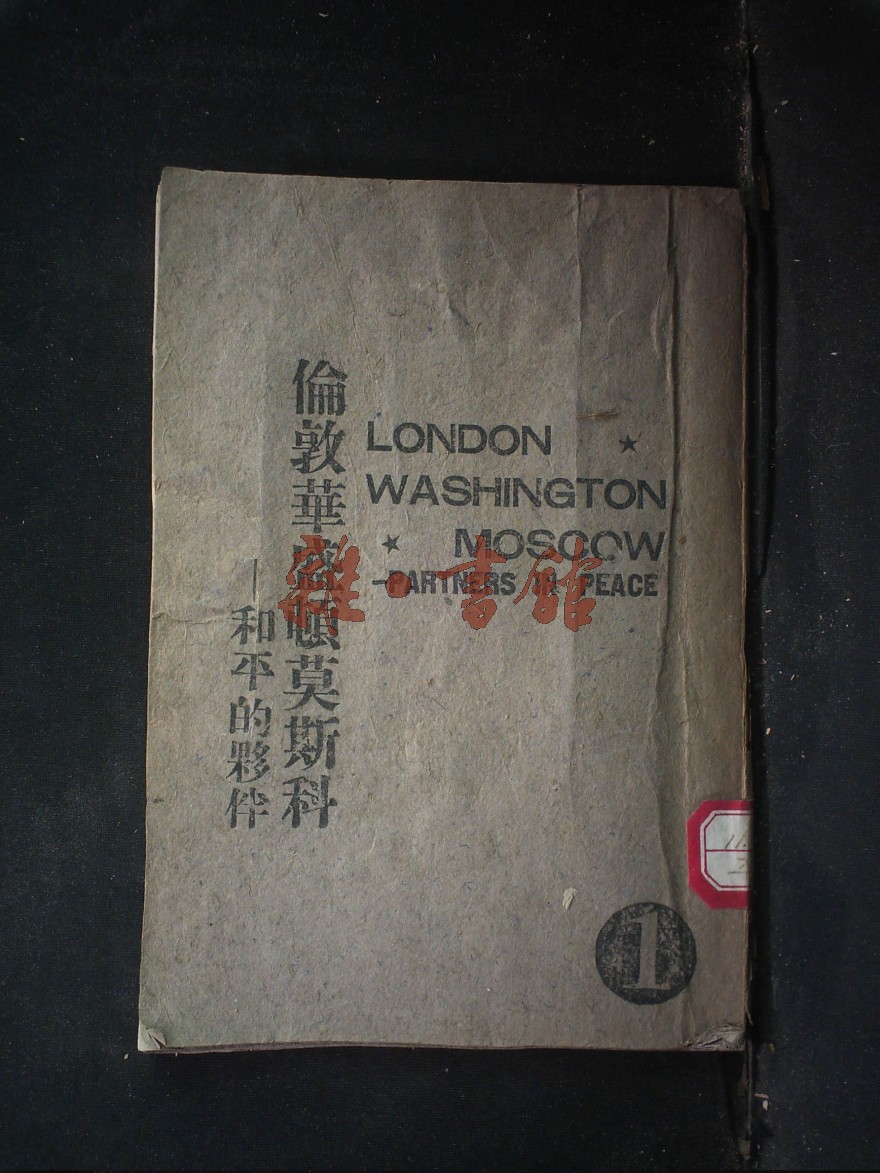 倫敦華盛頓莫斯科
—和平的夥伴
LONDON ★
WASHINGTON
★ MOSCOW
—PARTNERS IN PEACE
雜·書館
11.
1